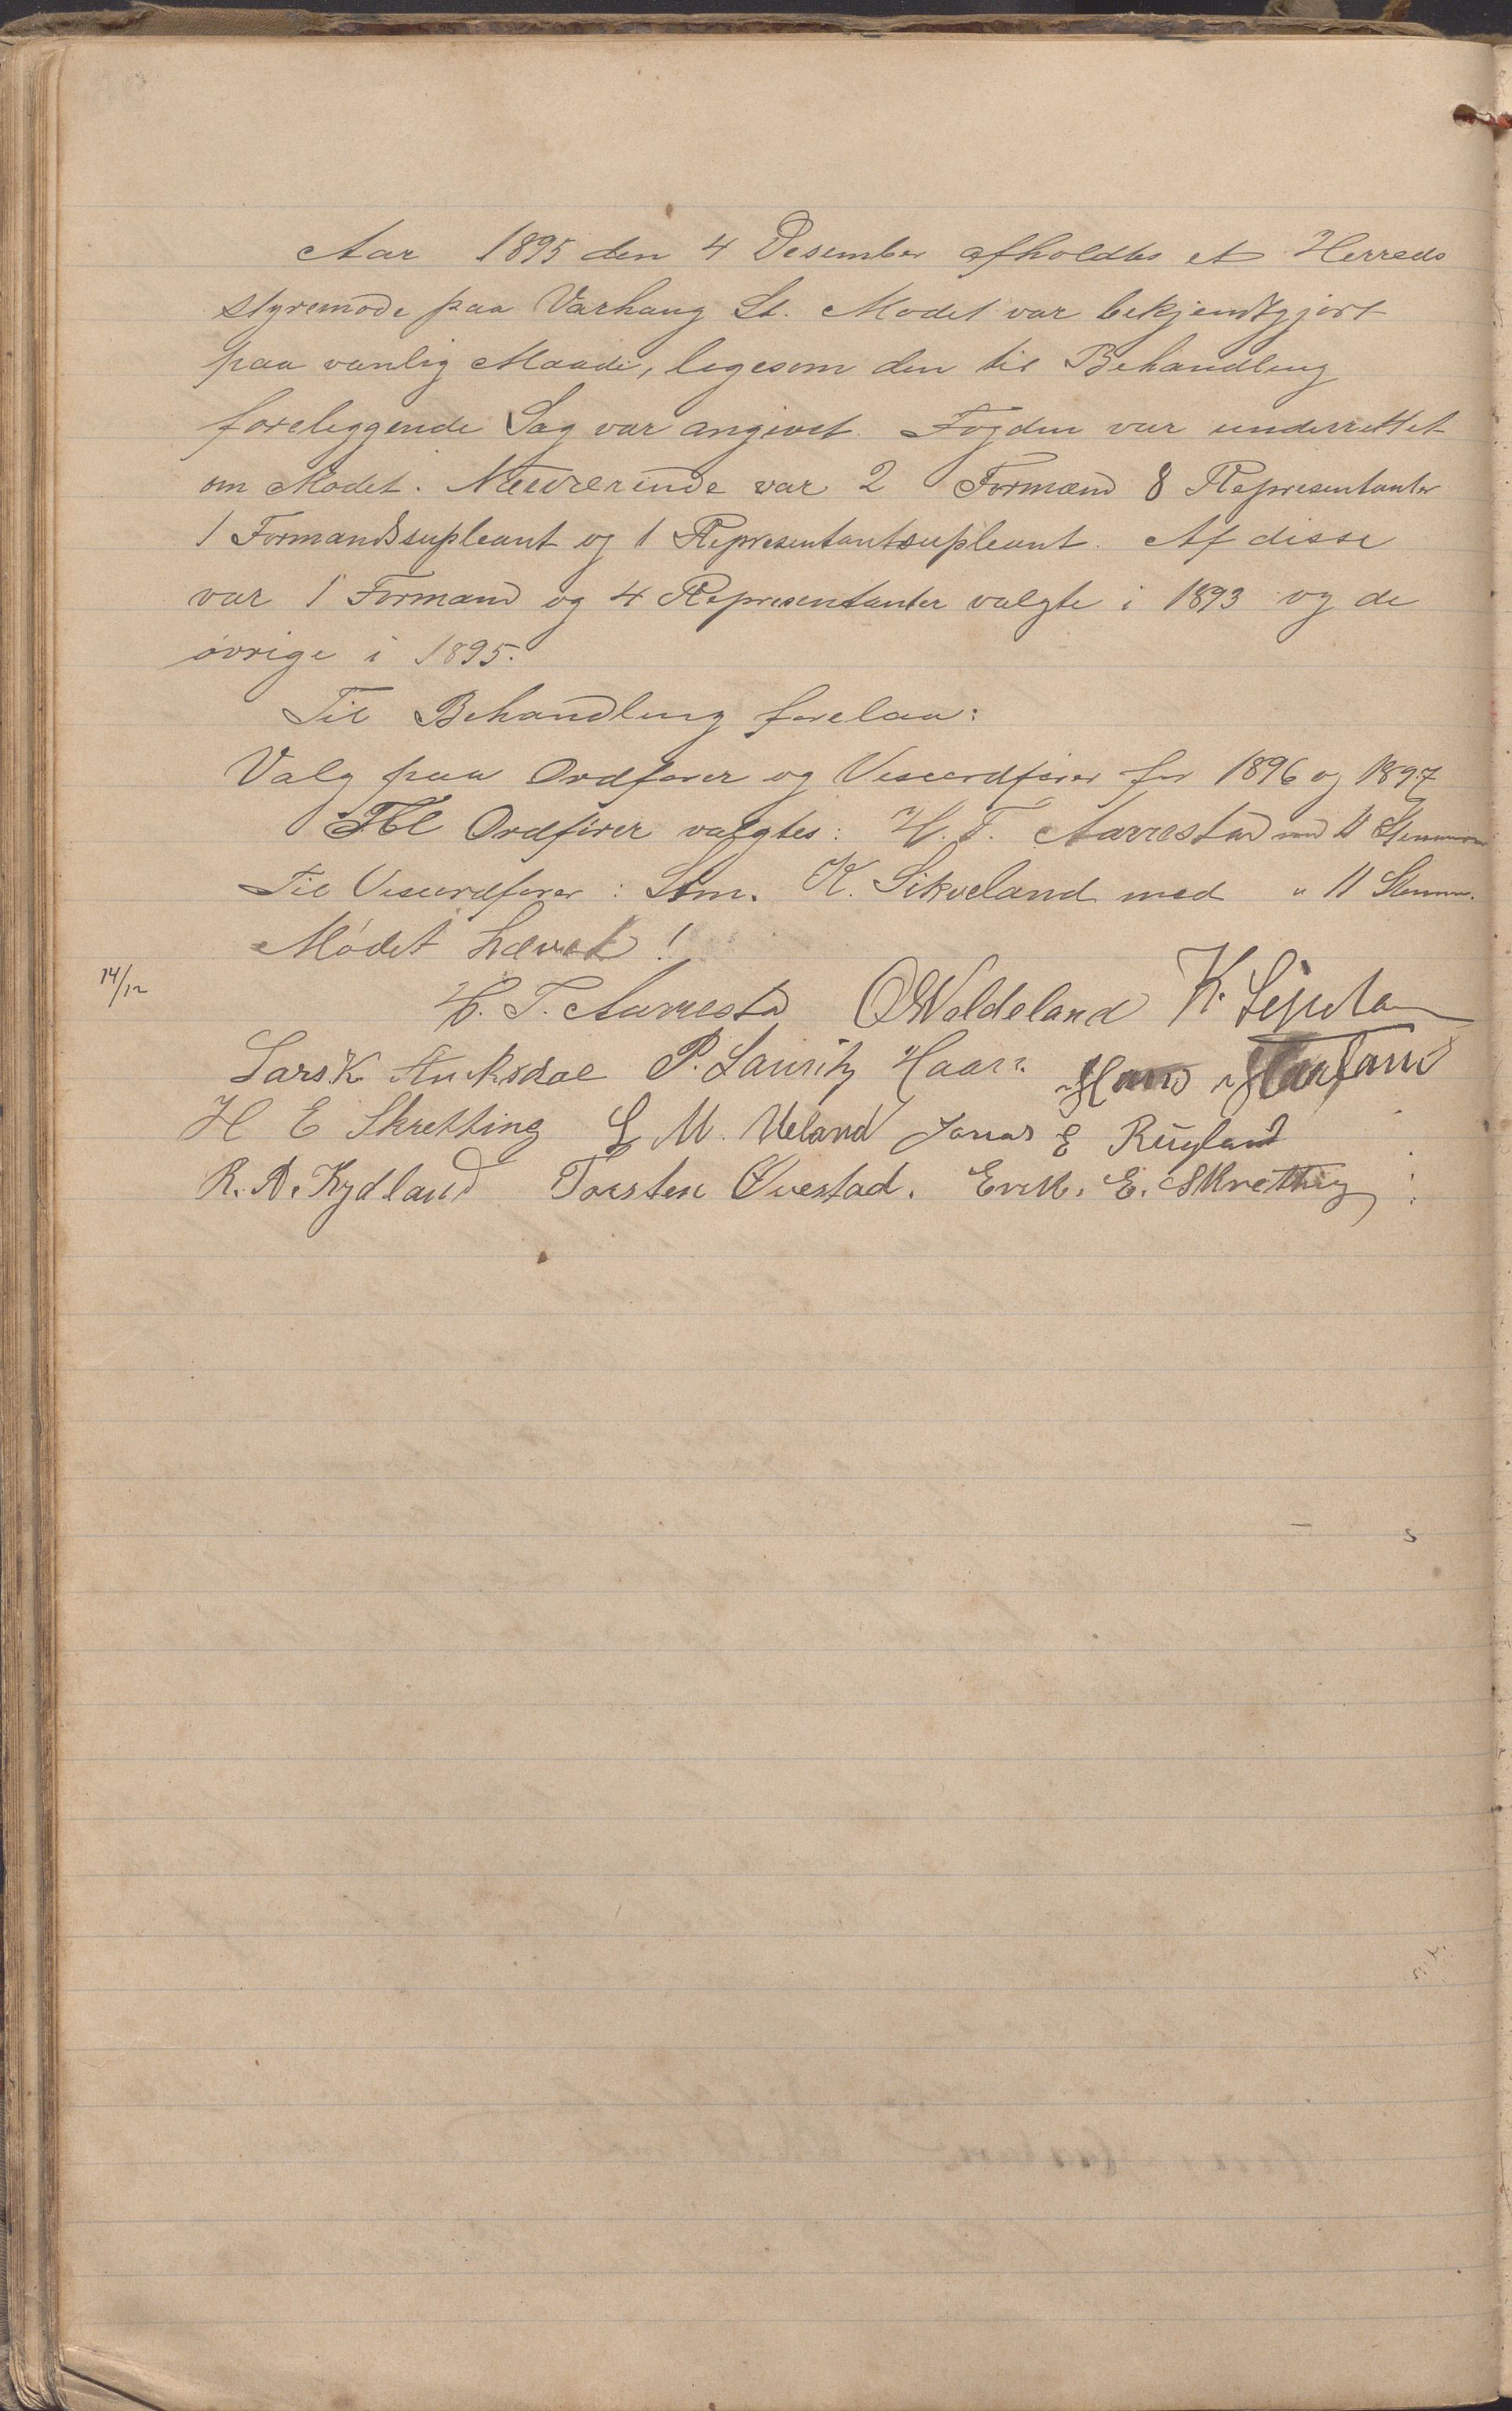 Aar 1895 den 4 Desember afholdtes et Herreds
styremøde paa Varhaug St. Mødet var bekjendtgjort
paa vanlig Maade, ligesom den til Behandling
foreliggende Sag var angivet. Fogden var underrettet
om Mødet. Nærværende var 2 Formænd 8 Representanter
1 Formandssupleant og 1 Representantsupleant. Af disse
var 1 Formand og 4 Representanter valgte i 1893 og de
øvrige i 1895.
Til Behandling forelaa:
Valg paa Ordfører og Viseordfører for 1896 og 1897
Til Ordfører valgtes: H. T. Aarrestad med 11 Stemmer
Til Viseordfører: Sim. K. Sikveland med " 11 Stemm.
Mødet hævet!
14/12
H. T. Aarrestad O Woldeland K.
Lars K. P. Lauritz Haar. Hans
H E Skretting L M. Ueland Jonas E Rugland
R. A. Kydland Torsten Ovestad. Erik. E. Skretting